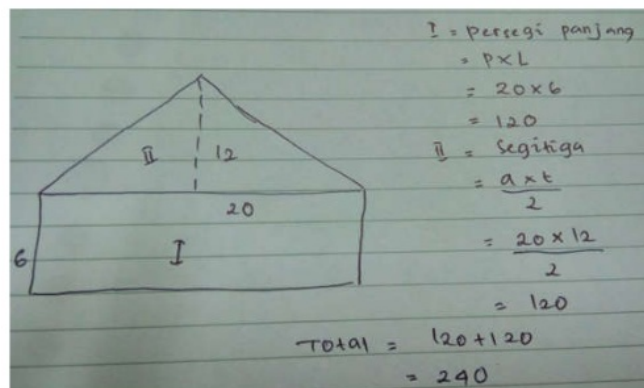 II 12
20
6 I
I = persegi panjang
= P x L
= 20 x 6
= 120
II = Segitiga
= a x t
2
= 20 x 12
2
= 120
Total = 120 + 120
= 240